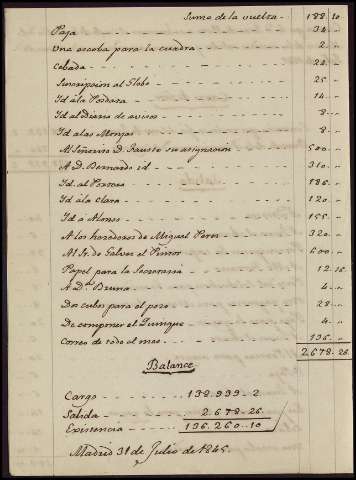 Suma de la vuelta - 188. 10
Paja - 34 ..
Una escoba para la cuadra - 2 ..
Cebada - 22 ..
Suscripcion al Globo - 25 ..
Id. a la Posdata - 14 ..
Id. al Diario de avisos - 8 ..
Id. a las Monjas - 8 ..
Al Señorito D. Fausto su asignacion 500 ..
A D. Bernardo id - 310 ..
Id. al Portero - 186 ..
Id. a la Clara - 120 ..
Id. a Alonso - 155 ..
A los herederos de Miguel Perez - 320 ..
Al Sr. de Galvez el Pintor - 600 ..
Papel para la Secretaria - 12. 16
A Dª Bruna - 4 ..
Dos cubos para el pozo - 28 ..
De componer el - 4 ..
Correo de todo el mes - 136 ..
2678 - 26
Balance
Cargo - 138.939 - 2
Salida - 2.678 - 26
Existencia - 136.260 - 10
Madrid 31 de Julio de 1845.